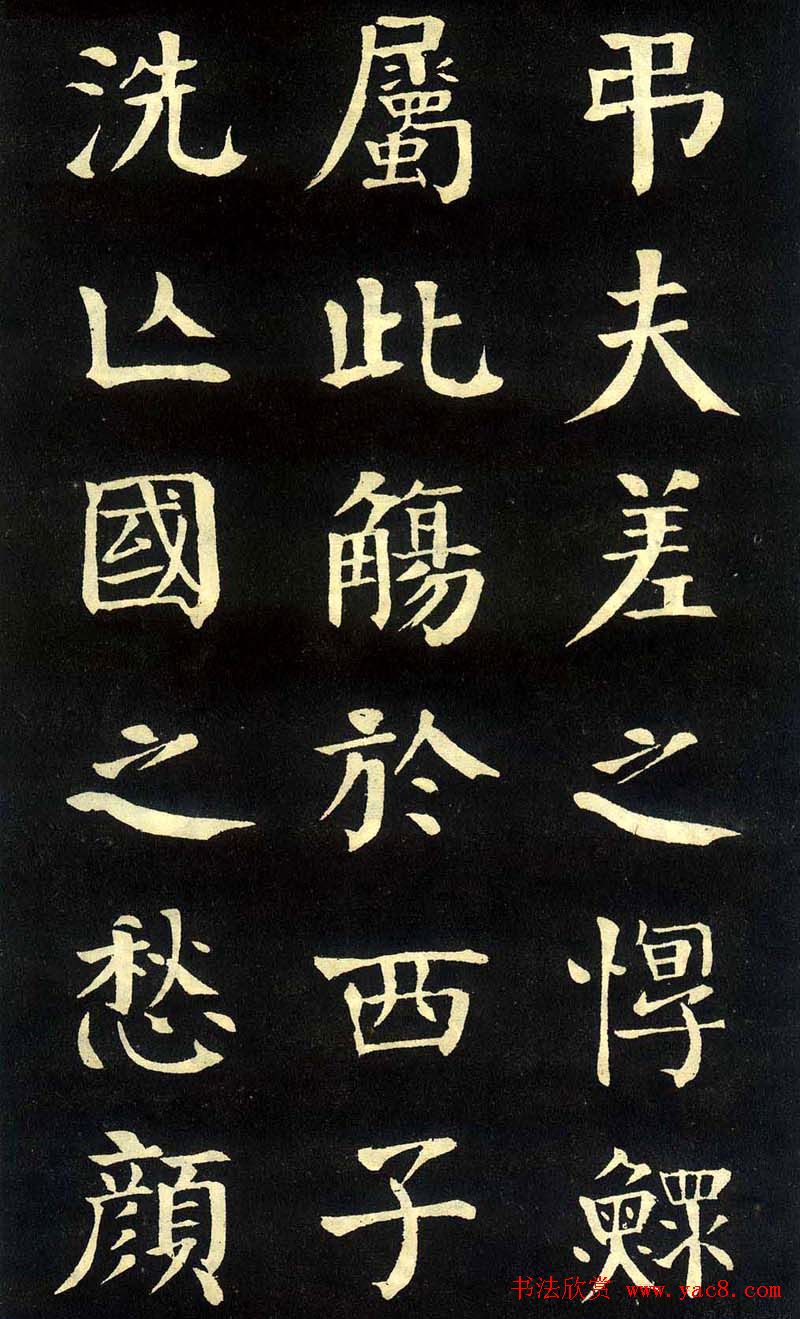 弔夫差之悍鰥
屬此觴於西子
洗亾國之愁顔
书法欣赏 www.yac8.com